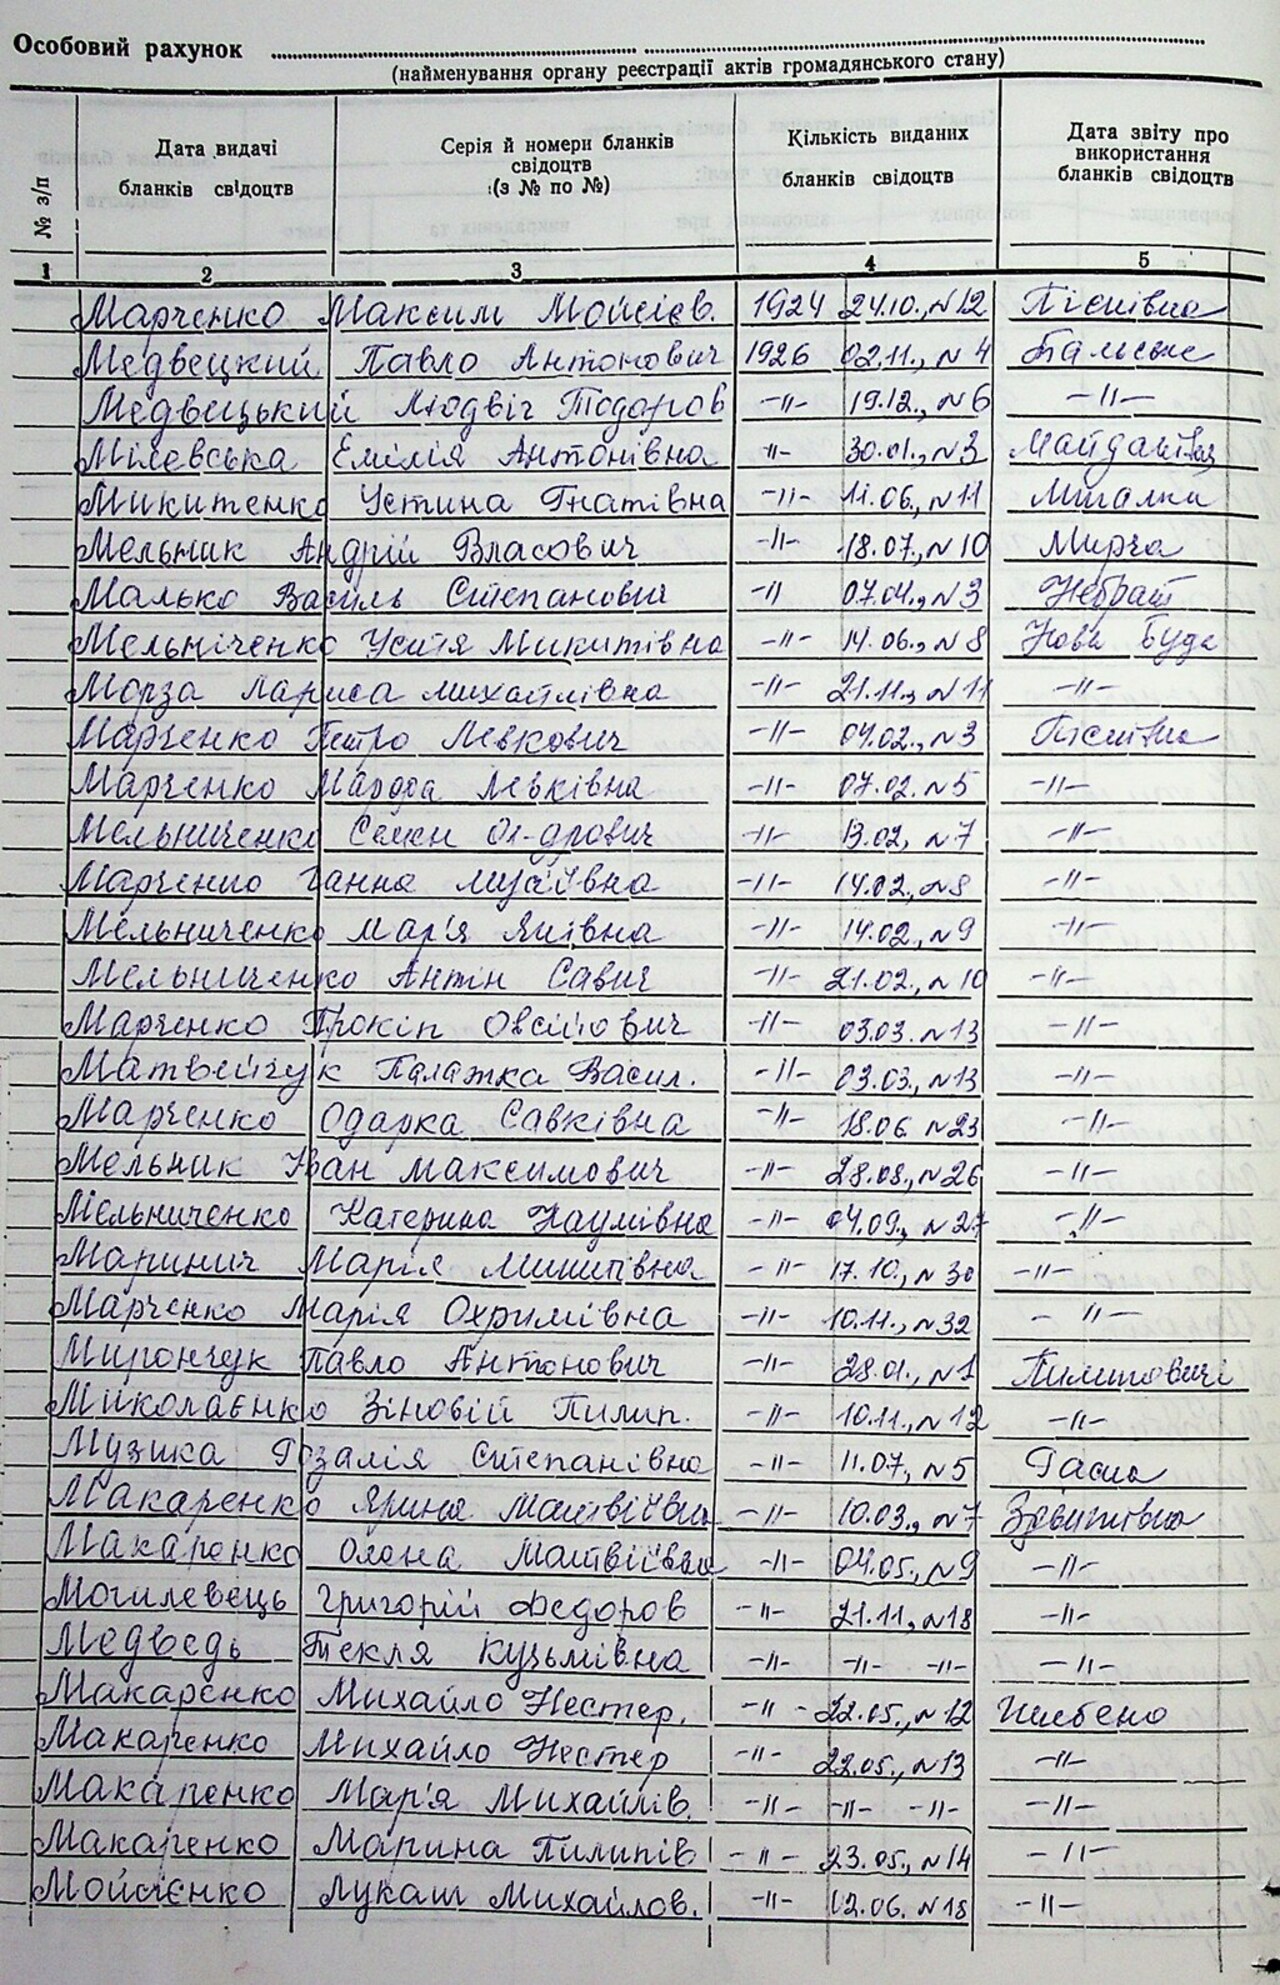 Особовий рахунок
(найменування органу реєстрації актів громадянського стану)
№ з/п
Дата видачі бланків свідоцтв
Серія й номери бланків свідоцтв (з № по №)
Кількість виданих бланків свідоцтв
Дата звіту про використання бланків свідоцтв
1 2 3 4 5
Марченко Максим Мойсієв. 1924 24.10., N 12 Пісківка
Медвецкий Павло Антонович 1926 02.11., N 4
Медвецький Людвіг Тодоров -"- 19.12., N 6 -"-
Мілевська Емілія Антонівна -"- 30.01., N 3
Микитенко Устина Гнатівна -"- 11.06., N 11 Мигалки
Мельник Андрій Власович -"- 18.07., N 10 Мирча
Малько Василь Степанович -" 07.04., N 3 Небрат
Мельніченко Устя Микитівна -"- 14.06., N 8 Нова Буда
Морза Лариса Михайлівна -"- 21.11., N 11 -"-
Марченко Петро Левкович -"- 04.02., N 3 Пісківка
Марченко Левківна -"- 07.02. N 5 -"-
Мельниченко Семен Ол-дрович -"- 13.02, N 7 -"-
Марченко Ганна -"- 14.02., N 8 -"-
Мельниченко Мар'я Яківна -"- 14.02., N 9 -"-
Мельниченко Антін Савич -"- 21.02., N 10 -"-
Марченко Прокіп Овсійович -"- 03.03. N 13 -"-
Матвейчук Палажка Васил. -"- 03.03., N 13 -"-
Марченко Одарка Савківна -"- 18.06. N 23 -"-
Мельник Іван Максимович -"- 28.08., N 26 -"-
Мельниченко Катерина Наумівна -"- 04.09., N 27 -"-
Маринич Марія Микитівна -"- 17.10., N 30 -"-
Марченко Марія Охримівна -"- 10.11., N 32 -"-
Мирончук Павло Антонович -"- 28.01., N 1 Пилиповичі
Миколаєнко Зіновій Пилип. -"- 10.11., N 12 -"-
Музика Розалія Степанівна -"- 11.07, N 5
Макаренко Ярина Матвіївна -"- 10.03., N 7 Здвижівка
Макаренко Олена Матвіївна -"- 04.05., N 9 -"-
Могилевець Григорій Федоров -"- 21.11., N 18 -"-
Медведь Текля Кузьмівна -"- -"- -"- -"-
Макаренко Михайло Нестер. -"- 22.05., N 12
Макаренко Михайло Нестер -"- 22.05., N 13 -"-
Макаренко Мар'я Михайлів. -"- -"- -"- -"-
Макаренко Марина Пилипів -"- 23.05., N 14 -"-
Мойсієнко Лукаш Михайлов. -"- 12.06. N 18 -"-